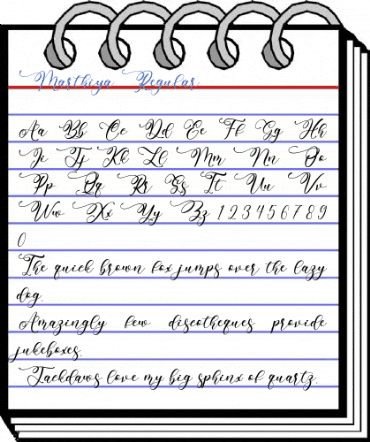 Marthiya Regular
Aa Bb Cc Dd Ee Ff Gg Hh
Ii Jj Kk Ll Mm Nn Oo
Pp Qq Rr Ss Tt Uu Vv
Ww Xx Yy Zz 1 2 3 4 5 6 7 8 9
0
The quick brown fox jumps over the lazy
dog.
Amazingly few discotheques provide
jukeboxes.
Jackdaws love my big sphinx of quartz.